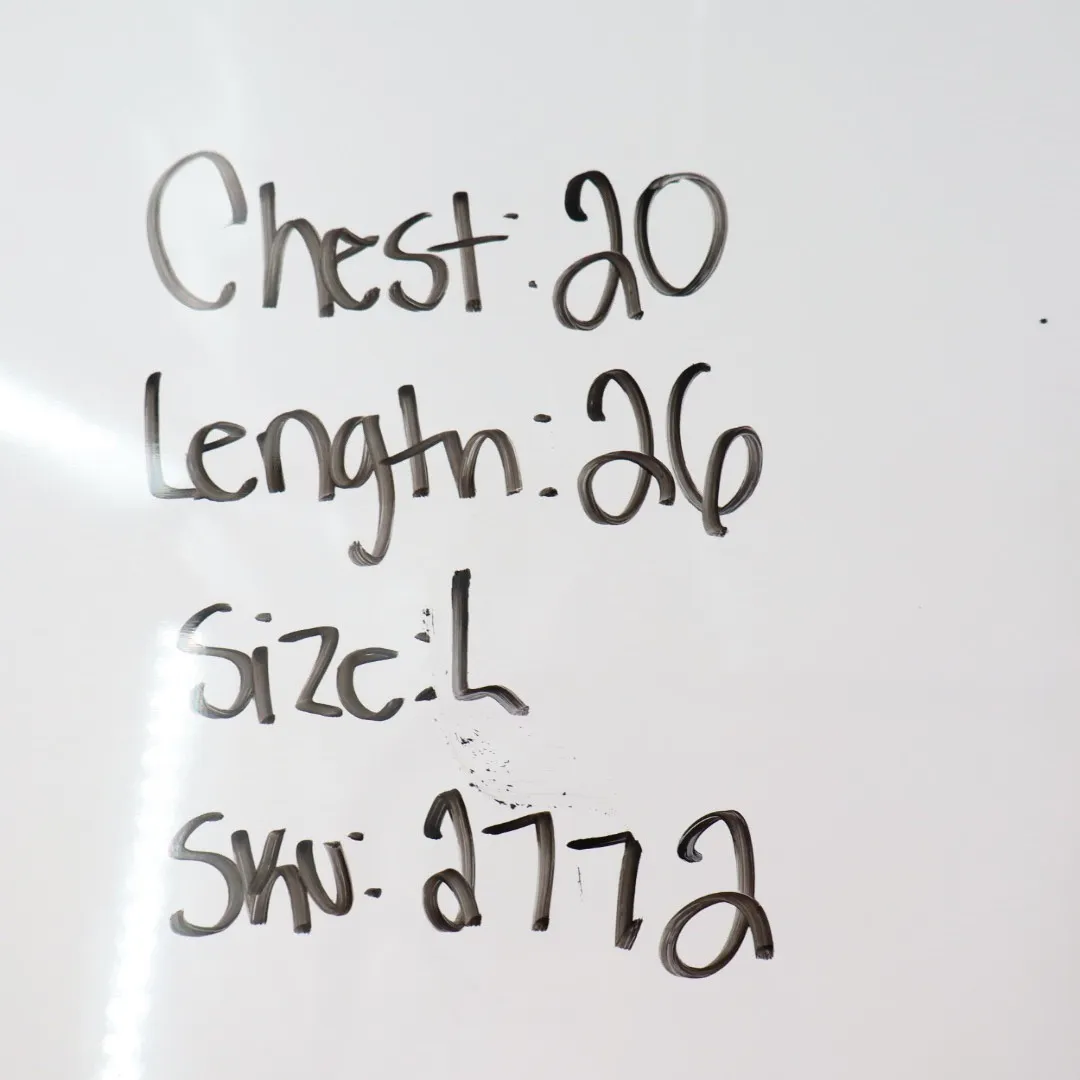 Chest: 20
Length: 26
Size: L
Sku: 2772